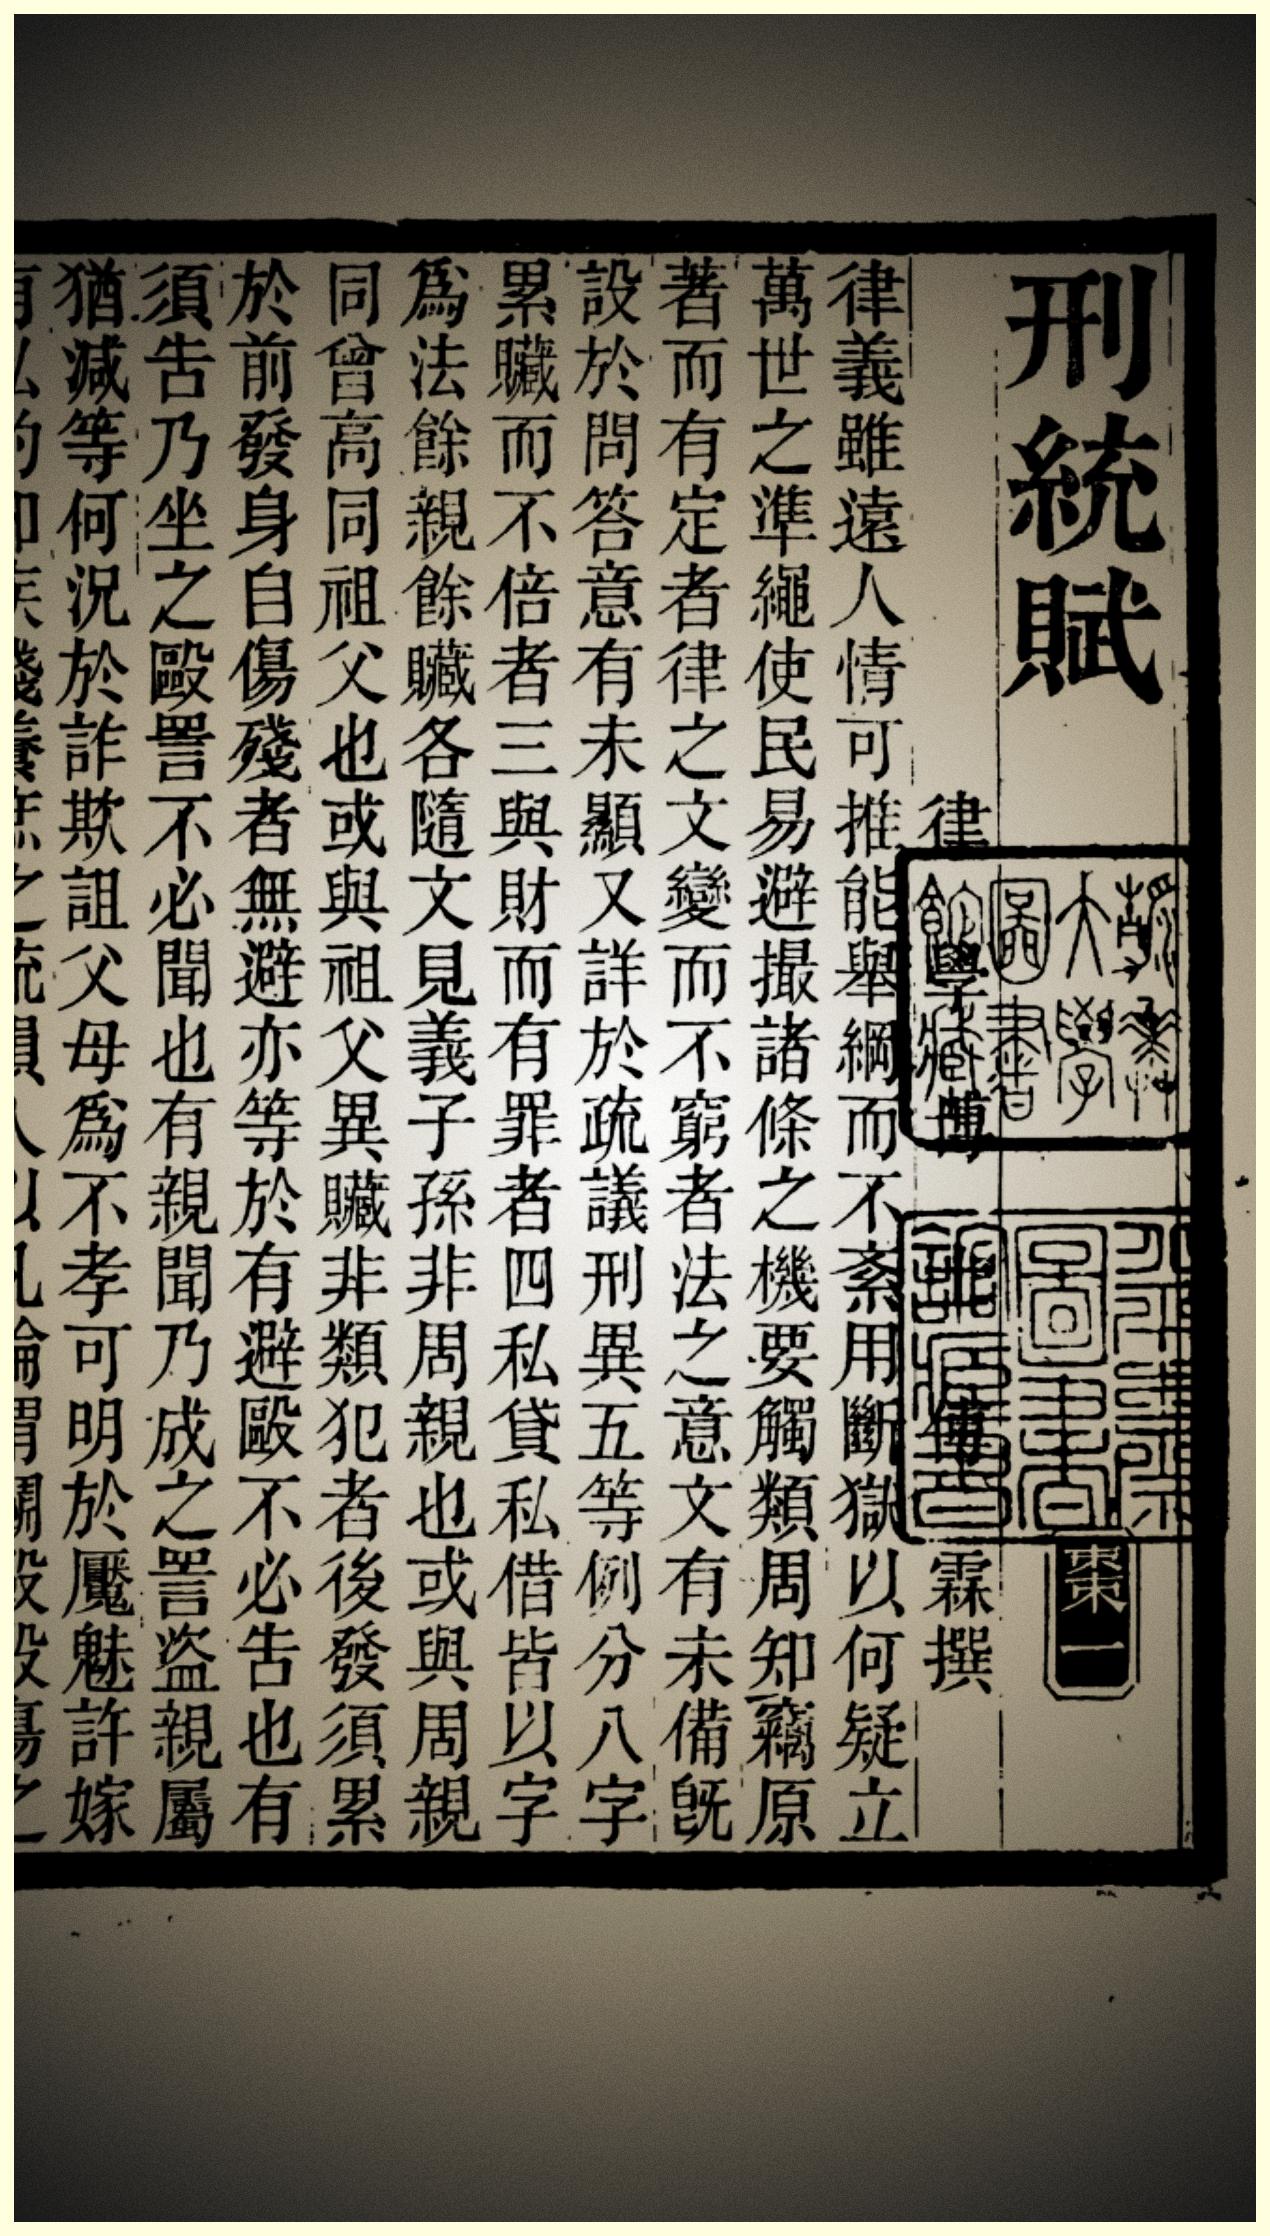 刑統賦
棗一
律學博 傅霖撰
律義雖遠人情可推能舉綱而不紊用斷獄以何疑立
萬世之準繩使民易避撮諸條之機要觸類周知竊原
著而有定者律之文變而不窮者法之意文有未備旣
設於問答意有未顯又詳於疏議刑異五等例分八字
累贓而不倍者三與財而有罪者四私貸私借皆以字
爲法餘親餘贓各隨文見義子孫非周親也或與周親
同曾高同祖父也或與祖父異贓非類犯者後發須累
於前發身自傷殘者無避亦等於有避毆不必告也有
須告乃坐之毆詈不必聞也有親聞乃成之詈盜親屬
猶減等何況於詐欺詛父母爲不孝可明於魘魅許嫁